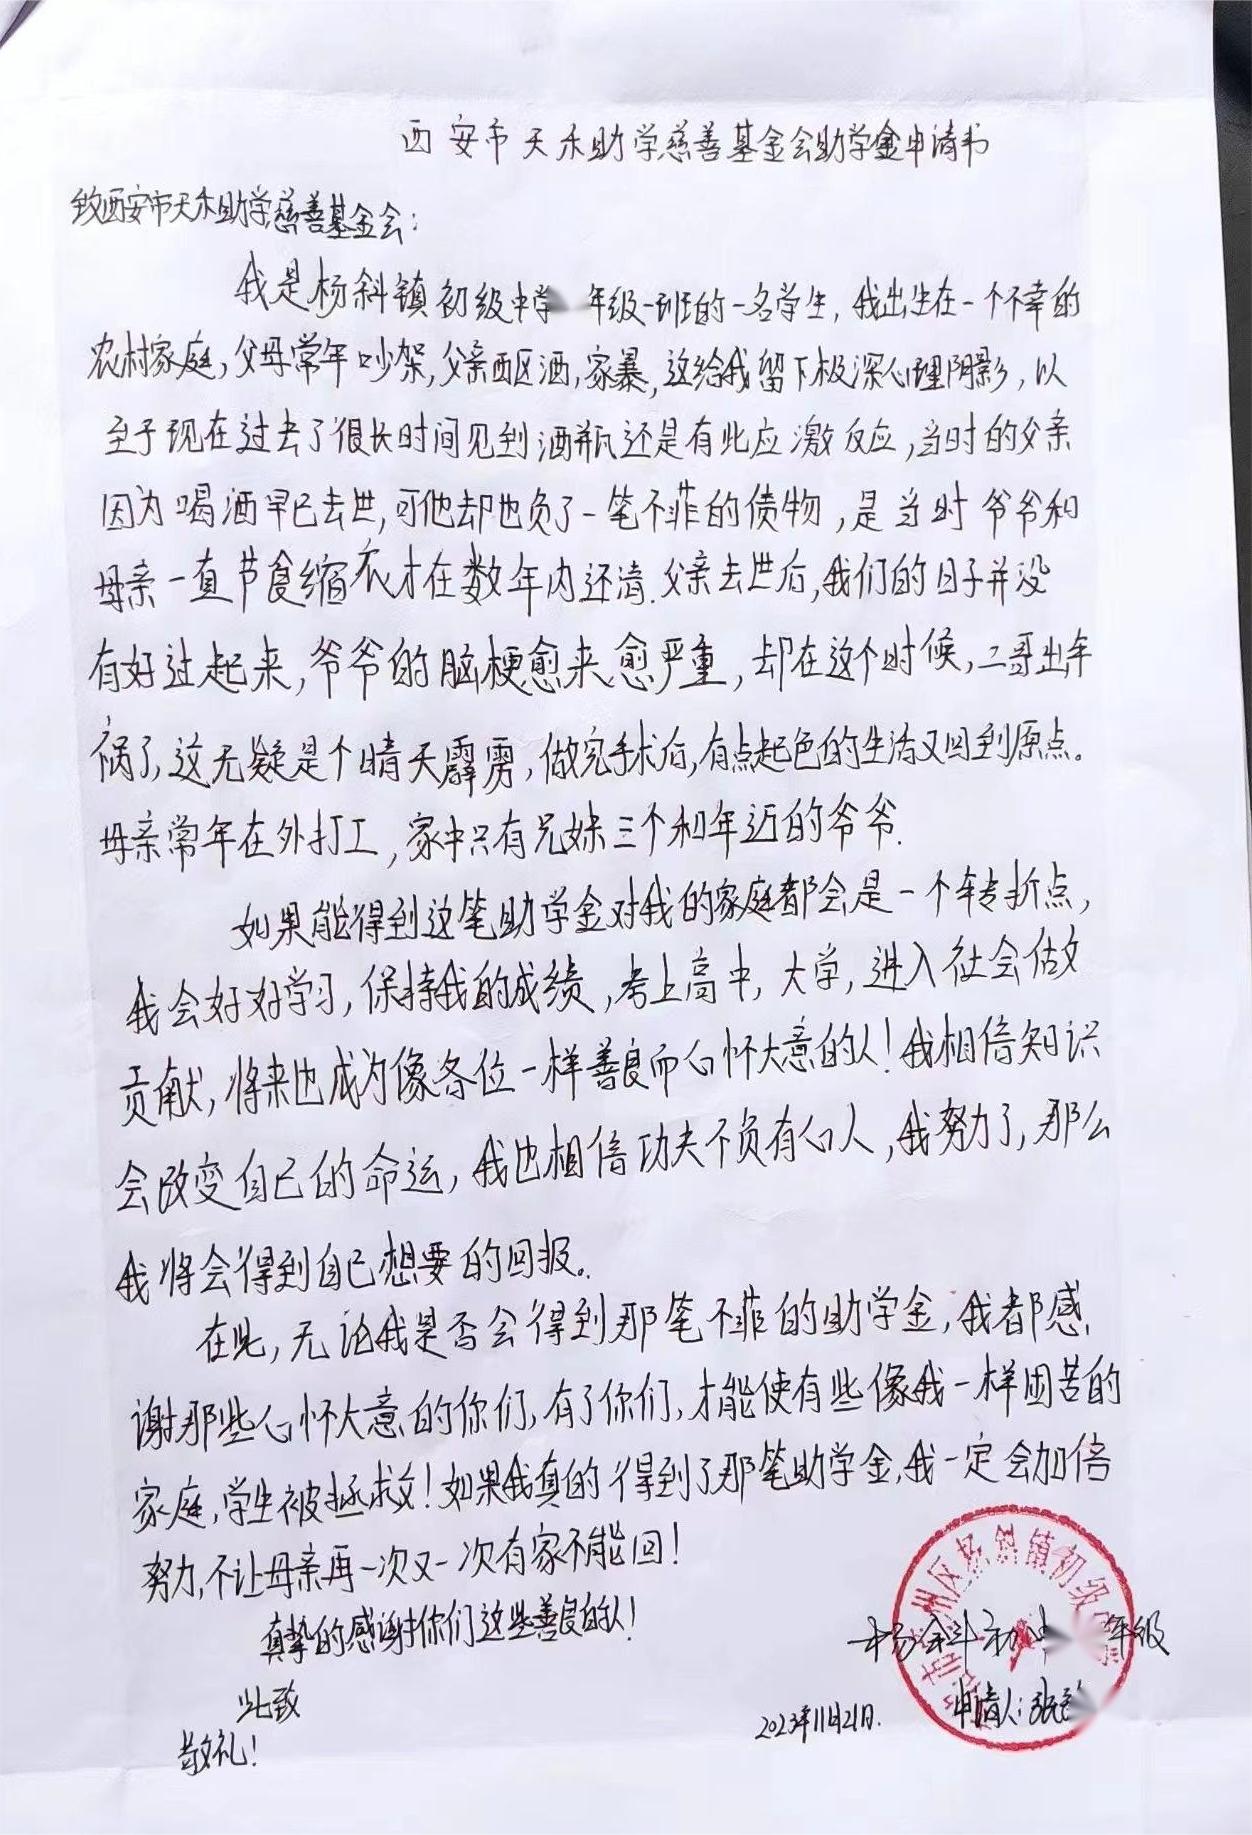 西安市天禾助学慈善基金会助学金申请书
致西安市天禾助学慈善基金会：
我是杨斜镇初级中学 年级一班的一名学生，我出生在一个不幸的
农村家庭，父母常年吵架，父亲酗酒，家暴，这给我留下极深心理阴影，以
至于现在过去了很长时间见到酒瓶还是有些应激反应，当时的父亲
因为喝酒早已去世，可他却也负了一笔不菲的债物，是当时爷爷和
母亲一直节食缩衣才在数年内还清.父亲去世后，我们的日子并没
有好过起来，爷爷的脑梗愈来愈严重，却在这个时候，二哥出车
祸了，这无疑是个晴天霹雳，做完手术后，有点起色的生活又回到原点。
母亲常年在外打工，家中只有兄妹三个和年迈的爷爷.
如果能得到这笔助学金对我的家庭都会是一个转折点，
我会好好学习，保持我的成绩，考上高中，大学，进入社会做
贡献，将来也成为像各位一样善良而心怀大意的人！我相信知识
会改变自己的命运，我也相信功夫不负有心人，我努力了，那么
我将会得到自己想要的回报。
在此，无论我是否会得到那笔不菲的助学金，我都感
谢那些心怀大意的你们，有了你们，才能使有些像我一样困苦的
家庭，学生被拯救！如果我真的得到了那笔助学金，我一定会加倍
努力，不让母亲再一次又一次有家不能回！
真挚的感谢你们这些善良的人！
此致
敬礼！
杨斜初中 年级
申请人：张
2023年11月21日.
州区杨斜镇初级